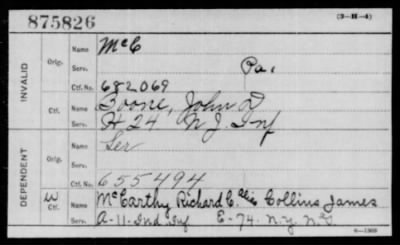 875826 (3-H-4)
INVALID
Orig. Name McC
Serv. Pa.
Ctf. No. 682069
Ctf. Name Boone, John D
Serv. H 24 N J. Inf
DEPENDENT
Orig. Name Ser
Serv.
Ctf. No. 655494
W Ctf. Name McCarthy Richard C. alis Collins James
Serv. A-11-Ind Inf E-74. N.Y. N.G